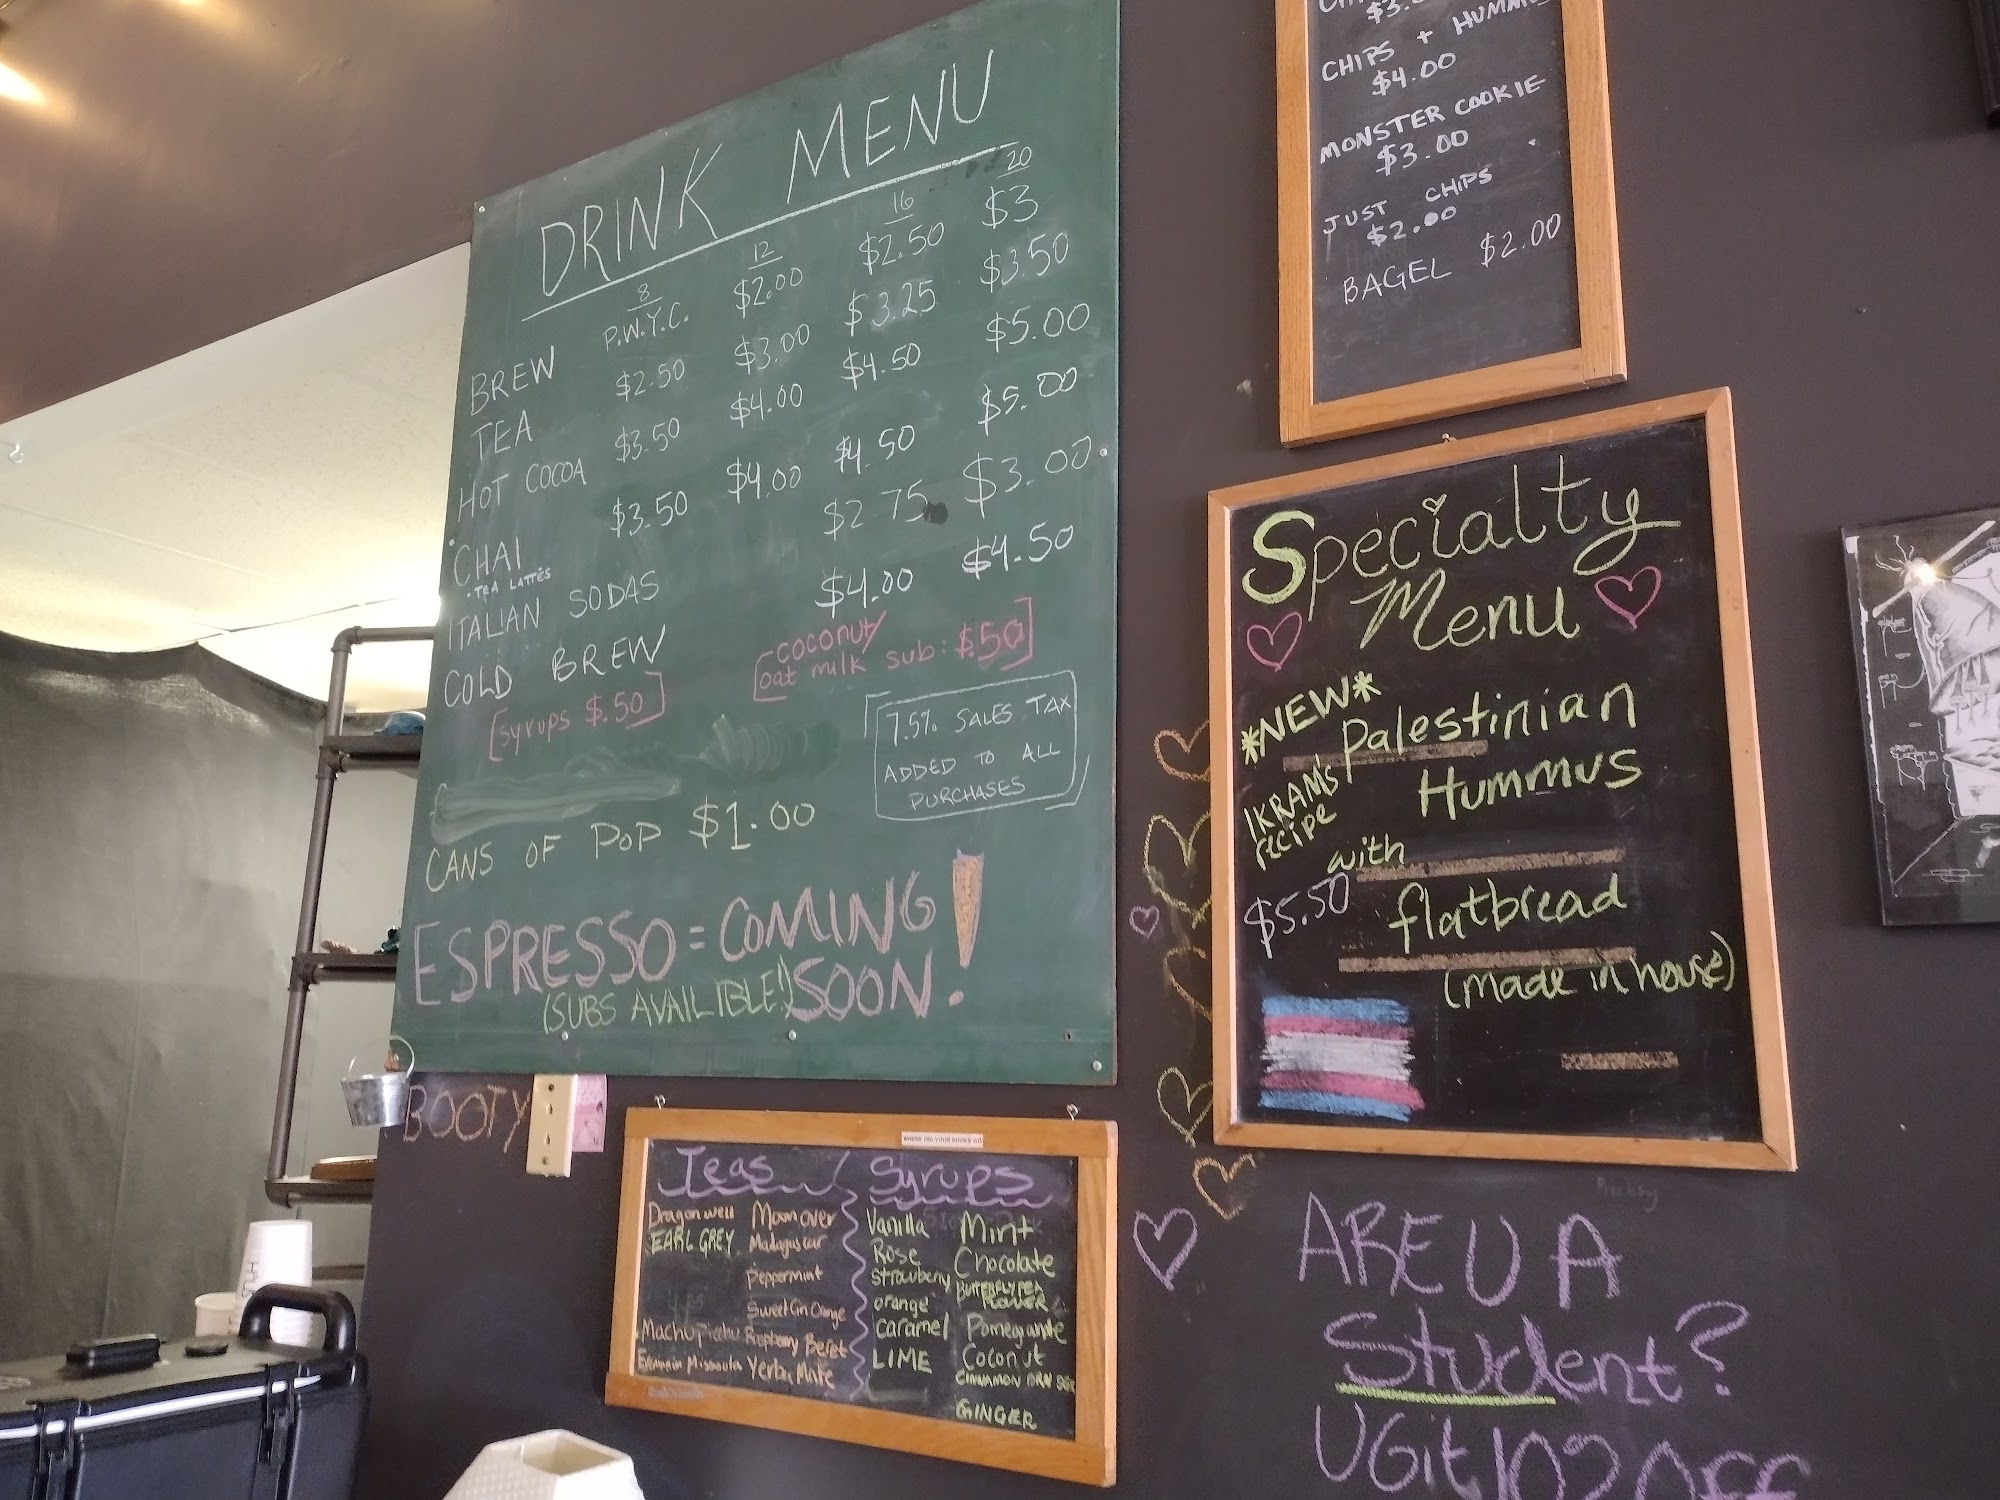 DRINK MENU
8 12 16 20
BREW P.W.Y.C. $2.00 $2.50 $3
TEA $2.50 $3.00 $3.25 $3.50
HOT COCOA $3.50 $4.00 $4.50 $5.00
CHAI $3.50 $4.00 $4.50 $5.00
• TEA LATTÉS
ITALIAN SODAS $2.75 $3.00
COLD BREW $4.00 $4.50
[syrups $.50]
[coconut/
oat milk sub: $.50]
7.5% SALES TAX
ADDED TO ALL
PURCHASES
CANS OF POP $1.00
ESPRESSO = COMING
SOON!
(SUBS AVAILIBLE!)
CHIPS + HUMMUS
$4.00
MONSTER COOKIE
$3.00
JUST CHIPS
$2.00
BAGEL $2.00
Specialty
Menu
*NEW*
Palestinian
Hummus
IKRAM'S
recipe
with
$5.50
flatbread
(made in house)
BOOTY
WHERE DID YOUR SHOES GO
Teas
Dragonwell Moon over
EARL GREY Madagascar
Peppermint
Sweet Gin Orange
Machu Picchu Raspberry Beret
Evenin in Missoula Yerba Mate
Syrups
Vanilla Mint
Rose Chocolate
Strawberry BUTTERFLY PEA
FLOWER
orange Pomegranate
caramel Coconut
LIME CINNAMON BRN SGR
GINGER
ARE U A
Student?
U Git 10% OFF